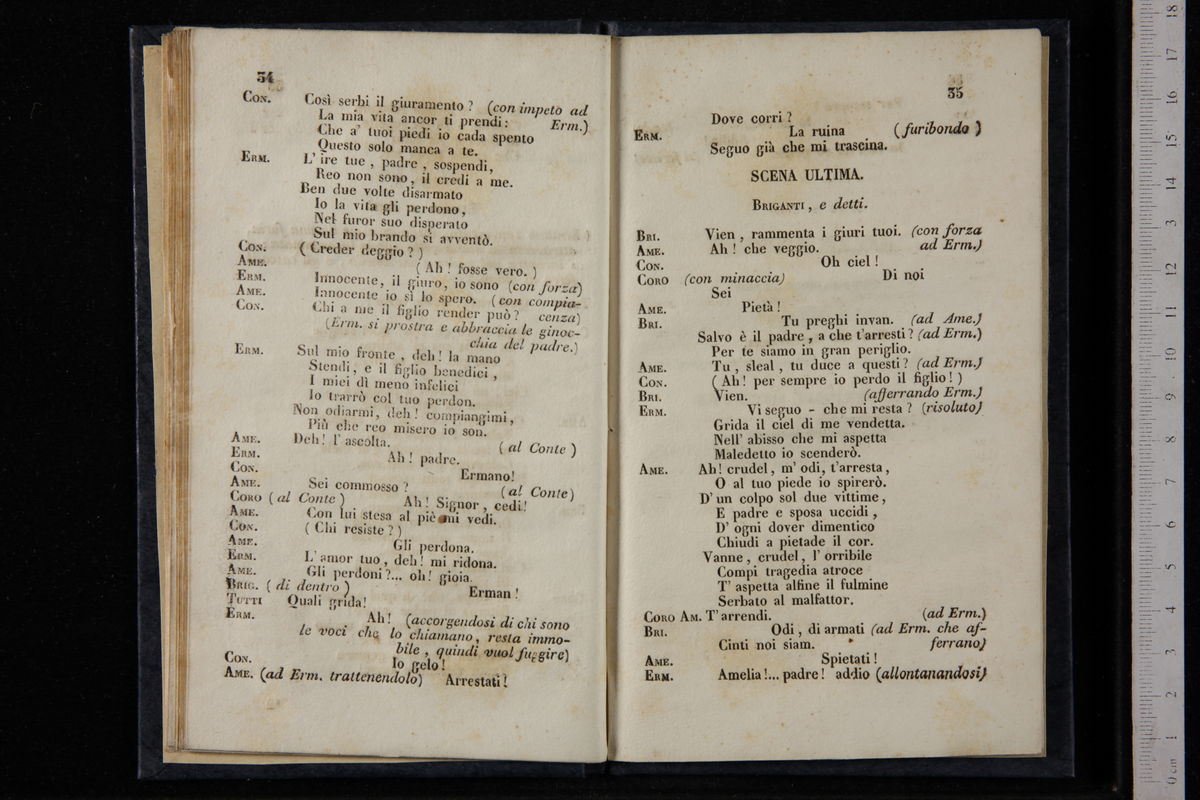 34
CON. Così serbi il giuramento ? (con impeto ad
La mia vita ancor ti prendi: Erm.)
Che a' tuoi piedi io cada spento
Questo solo manca a te.
ERM. L' ire tue , padre , sospendi,
Reo non sono, il credi a me.
Ben due volte disarmato
Io la vita gli perdono,
Nel furor suo disperato
Sul mio brando si avventò.
CON. ( Creder deggio ? )
AME. ( Ah ! fosse vero. )
ERM. Innocente, il giuro, io sono (con forza)
AME. Innocente io sì lo spero. (con compia-
CON. Chi a me il figlio render può ? cenza)
(Erm. si prostra e abbraccia le ginoc-
chia del padre.)
ERM. Sul mio fronte , deh ! la mano
Stendi, e il figlio benedici ,
I miei dì meno infelici
Io trarrò col tuo perdon.
Non odiarmi, deh ! compiangimi,
Più che reo misero io son.
AME. Deh ! l' ascolta. ( al Conte )
ERM. Ah ! padre.
CON. Ermano!
AME. Sei commosso ? (al Conte)
CORO ( al Conte ) Ah ! Signor , cedi!
AME. Con lui stesa al piè mi vedi.
CON. ( Chi resiste ? )
AME. Gli perdona.
ERM. L' amor tuo, deh! mi ridona.
AME. Gli perdoni ?... oh! gioia.
BRIG. ( di dentro ) Erman !
TUTTI Quali grida!
ERM. Ah! (accorgendosi di chi sono
le voci che lo chiamano, resta immo-
bile , quindi vuol fuggire)
CON. Io gelo!
AME. (ad Erm. trattenendolo) Arrestati!
35
Dove corri ?
ERM. La ruina (furibondo )
Seguo già che mi trascina.
SCENA ULTIMA.
BRIGANTI , e detti.
BRI. Vien , rammenta i giuri tuoi. (con forza
AME. Ah ! che veggio. ad Erm.)
CON. Oh ciel !
CORO (con minaccia) Di noi
Sei
AME. Pietà !
BRI. Tu preghi invan. (ad Ame.)
Salvo è il padre , a che t'arresti ? (ad Erm.)
Per te siamo in gran periglio.
AME. Tu , sleal , tu duce a questi ? (ad Erm.)
CON. ( Ah ! per sempre io perdo il figlio ! )
BRI. Vien. (afferrando Erm.)
ERM. Vi seguo - che mi resta ? (risoluto)
Grida il ciel di me vendetta.
Nell' abisso che mi aspetta
Maledetto io scenderò.
AME. Ah! crudel, m' odi, t'arresta,
O al tuo piede io spirerò.
D' un colpo sol due vittime,
E padre e sposa uccidi ,
D' ogni dover dimentico
Chiudi a pietade il cor.
Vanne , crudel, l' orribile
Compi tragedia atroce
T' aspetta alfine il fulmine
Serbato al malfattor.
CORO AM. T' arrendi. (ad Erm.)
BRI. Odi, di armati (ad Erm. che af-
Cinti noi siam. ferrano)
AME. Spietati !
ERM. Amelia !... padre ! addio (allontanandosi)
0 cm 1 2 3 4 5 6 7 8 9 10 11 12 13 14 15 16 17 18